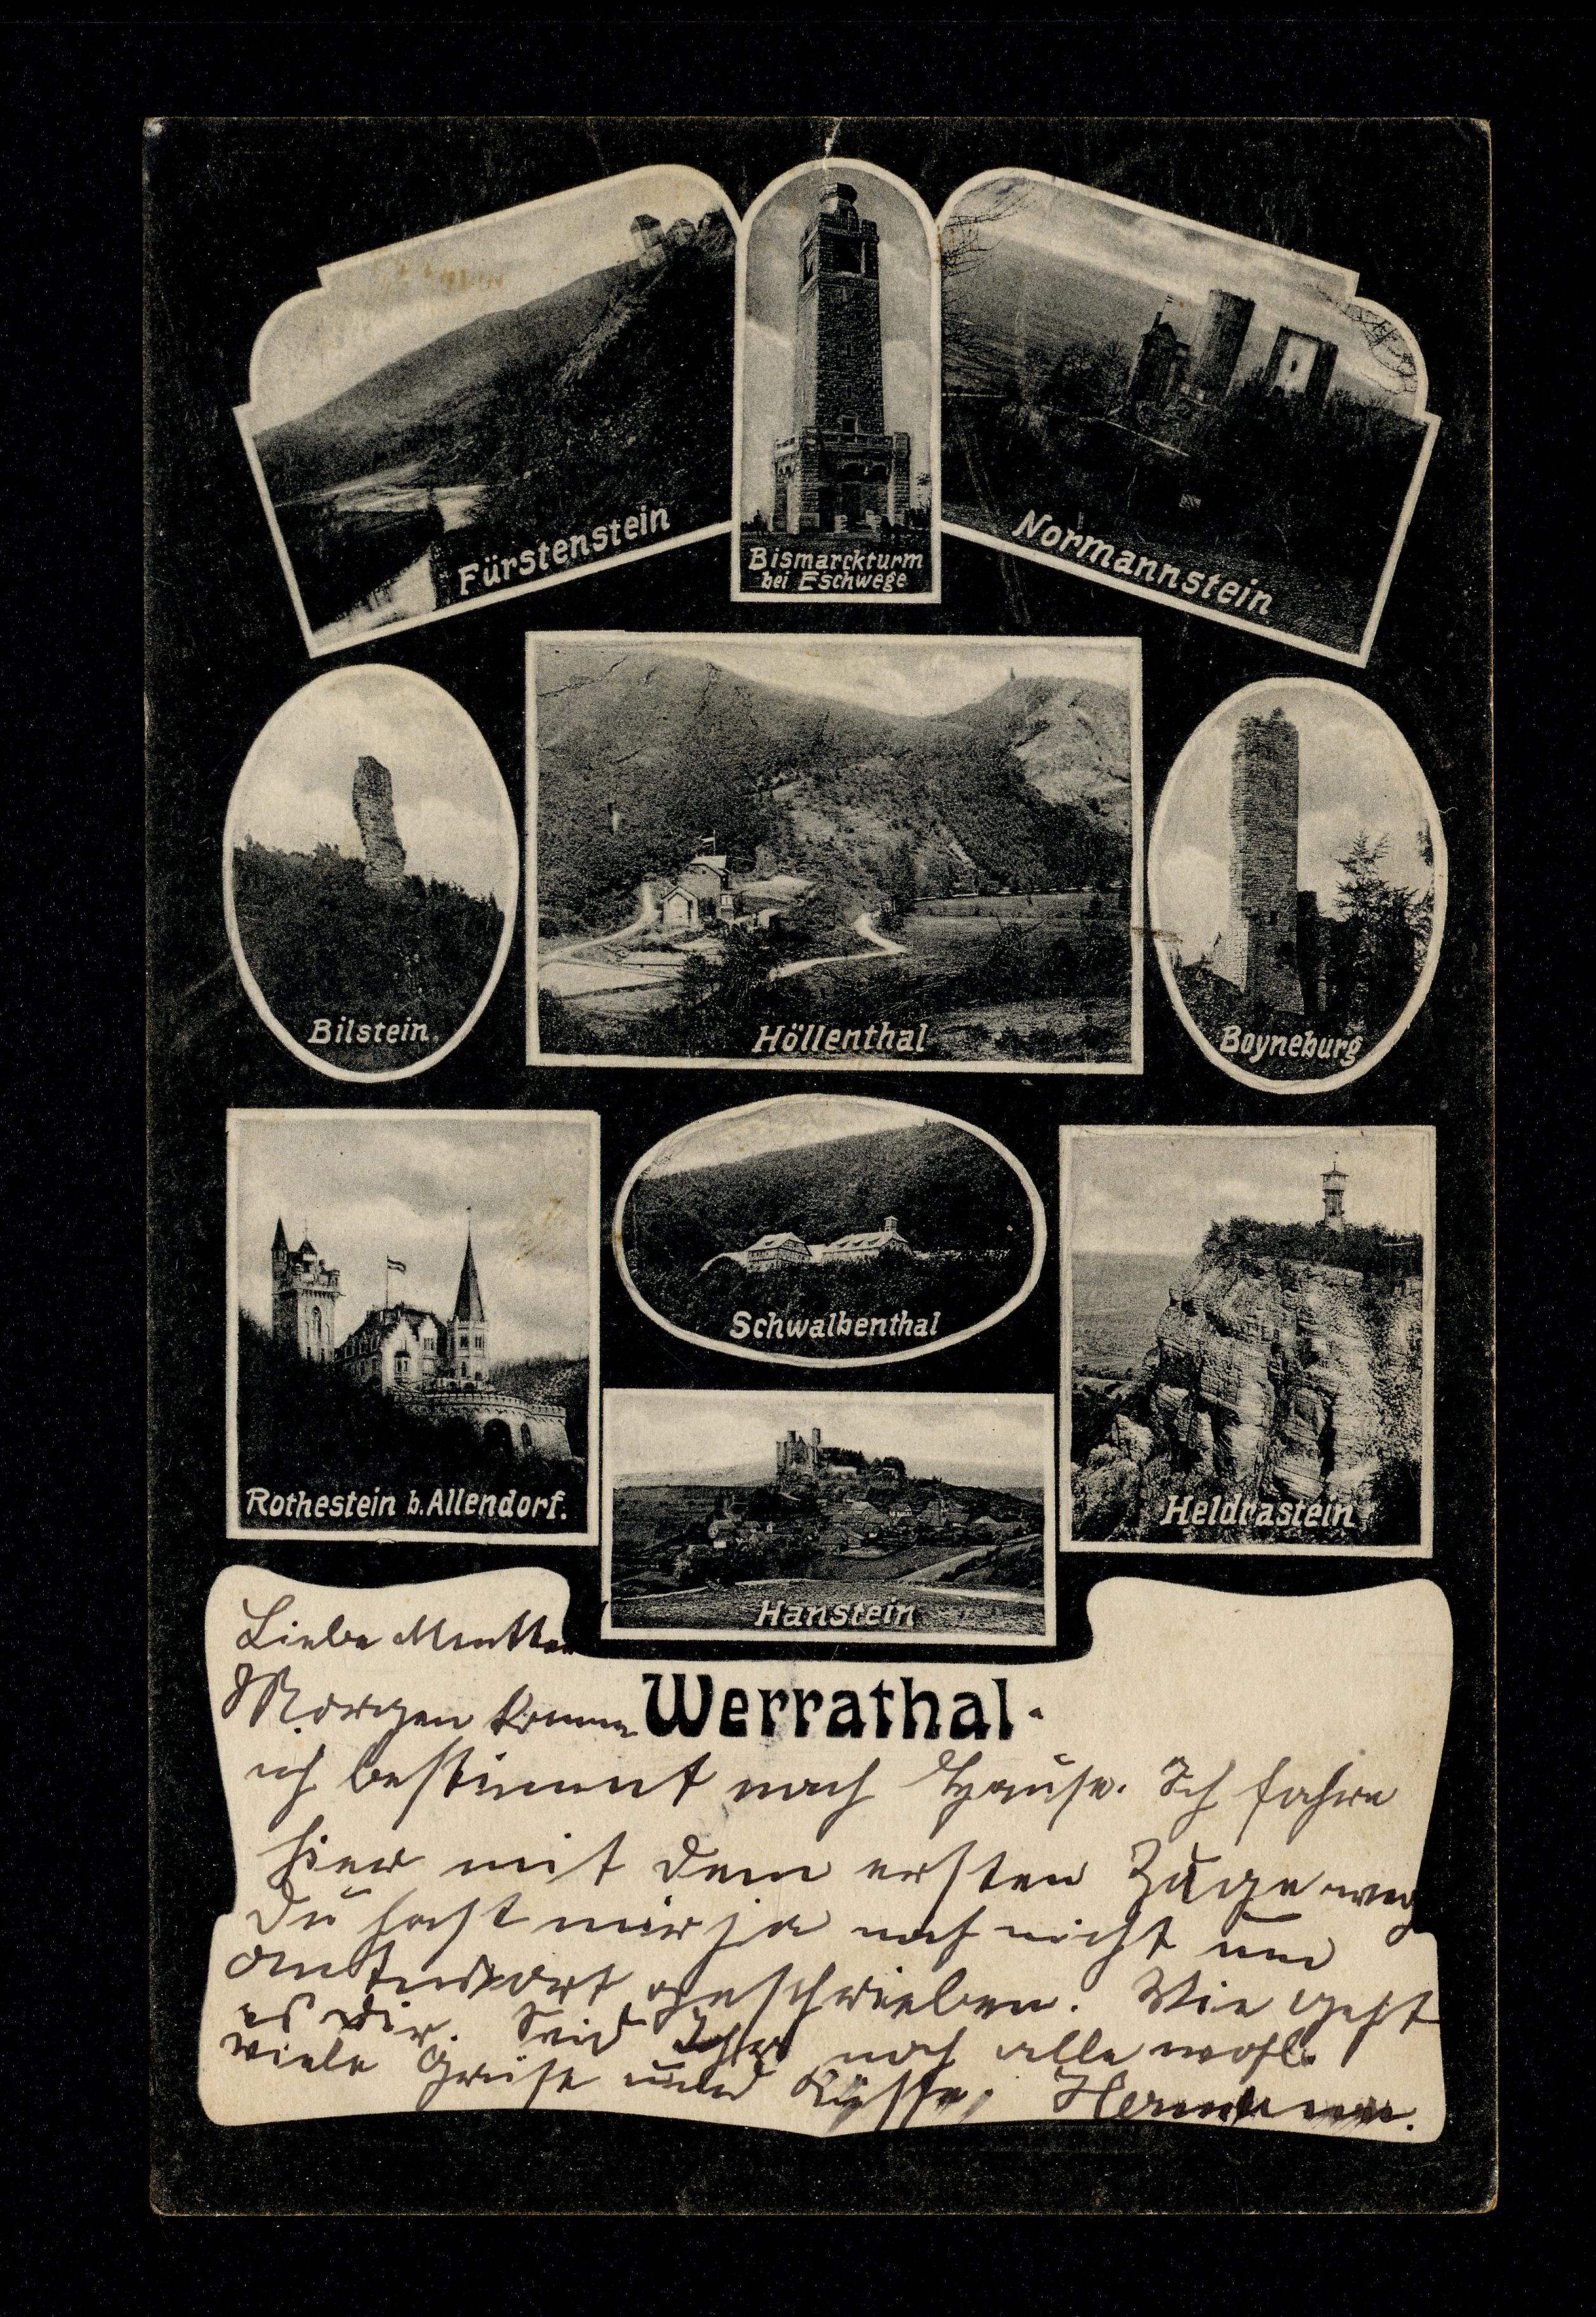 Fürstenstein
Bismarckturm
bei Eschwege
Normannstein
Bilstein.
Höllenthal
Boyneburg
Rothestein b. Allendorf.
Schwalbenthal
Heldrastein
Hanstein
Werrathal.
Liebe Mutter
Morgen komme
ich bestimmt nach Hause. Ich fahre
hier mit dem ersten Zuge weg
Du hast mir ja noch nicht um
geschrieben. Wie geht
es Dir. Seid Ihr noch alle wohl.
viele Grüße und Küsse, Hermann.